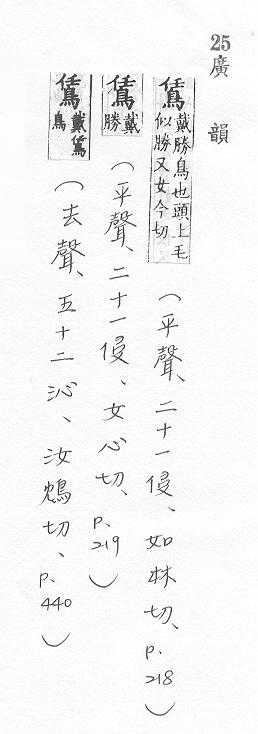 25廣韻
鵀戴勝鳥也頭上毛似勝又女今切(平聲、二十一侵、如林切、p.218)
鵀戴勝(平聲、二十一侵、女心切、p.219)
鵀戴鵀鳥(去聲、五十二沁、汝鴆切、p.440)